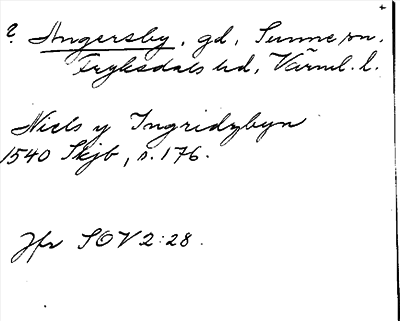 ? Angersby, gd, Sunne sn.
Fryksdals hd, Värml. l.
Niels y Ingridzbyn
1540 Skjb, s. 176.
Jfr SOV 2:28.